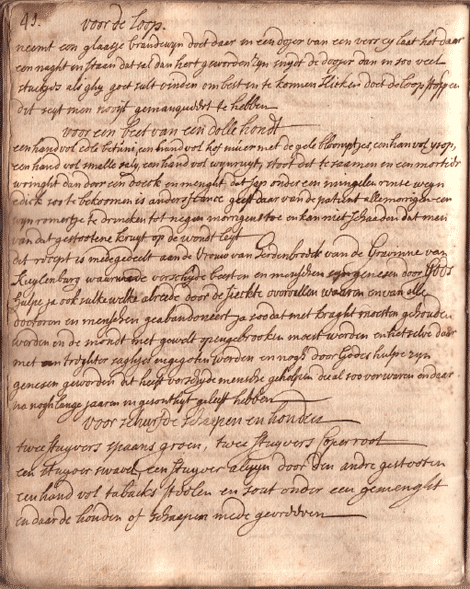 41. voor de loop.
neemt een glaasje brandewyn doet daar in een dojer van een vers ey laet het daar
een naght in staan dat sal dan hert geworden zyn snydt de dojer dan in soo veel
stuckjes als ghy goet sult vinden om best in te konnen slicken doet de loop stoppen
dit seyt men nooyt gemanqueert te hebben
voor een beet van een dolle hondt
een hand vol edele een hand vol met de gele bloempjes een hand vol ysop,
een hand vol smalle een hand vol wynruyt, stoot dit te saamen in een mortier
wringht dan door een doeck en menght dat sap onder een mingelen rinse wyn
edick soo te bekoomen is anders geeft daar van de patient alle morgen een
wyn romertje te drincken tot negen morgens toe en kan niet schaeden dat men
van dat gestootene kruyt op de wondt leyt
dit recept is medegedeelt aan de Vrouw van van de Gravinne van
Kuylenburg waar verscheyde beesten en menschen syn genesen door Gods
hulpe ja ook sulke welke alreede door de sieckte overvallen waaren en van alle
doctoren en menschen geabandoneert ja soo dat met kraght moesten gehouden
werden en de mondt met gewelt opengebrooken moest werden en hetselve daar
met een trechter saghjes ingegooten worden en nogh door Godes hulpe zyn
genesen geworden dit heeft verscheyde mensche geholpen die al soo ver waren en daar
na nogh lange jaaren in gesontheyt geleeft hebben
voor schurfde schaepen en honden
twee stuyvers spaans groen, twee stuyvers
een stuyver swavel, een stuyver aluyn door den andre gestooten
een hand vol tabacks steelen en sout onder een gemenght
en daar de honden of schaepen mede gevreeven